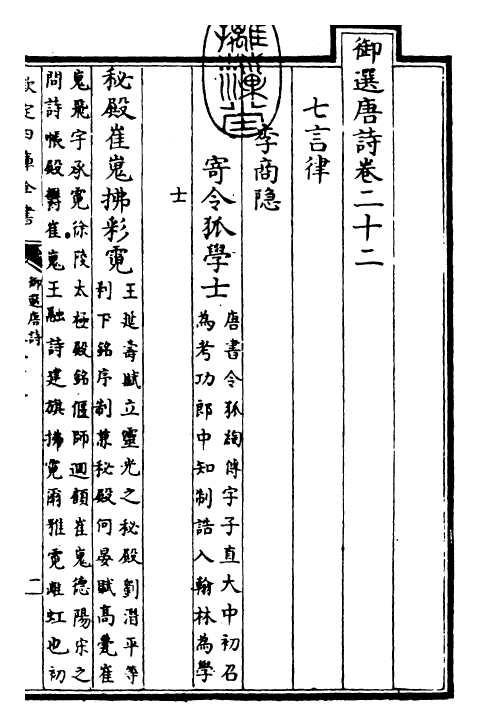 御選唐詩卷二十二
七言律
李商隐
寄令狐學士
唐書令狐綯傳字子直大中初召
為考功郎中知制誥入翰林為學
士
秘殿崔嵬拂彩霓
王延壽賦立靈光之秘殿劉潛平等
刹下銘序制兼秘殿何晏賦高甍崔
嵬飛宇承霓徐陵太極殿銘偃師迴顧崔嵬德陽宋之
問詩帳殿欝崔嵬王融詩建旗拂霓爾雅霓雌虹也初
欽定四庫全書
御選唐詩